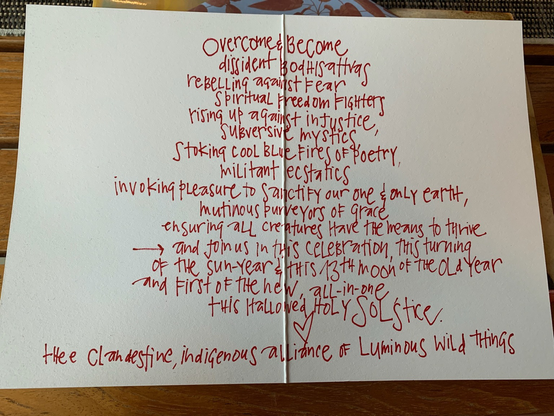 Overcome & Become
dissident Bodhisattvas
rebelling against Fear
Spiritual Freedom Fighters
rising up against injustice,
subversive mystics,
stoking cool blue fires of poetry,
militant ecstatics
invoking pleasure to sanctify our one & only earth,
mutinous purveyors of grace
ensuring all creatures have the means to thrive
→ and join us in this celebration, this turning
of the sun-year & this 13th moon of the old year
and first of the new, all-in-one
this Hallowed HOLY SOLStice.
♡
thee Clandestine, indigenous alliance of Luminous Wild Things